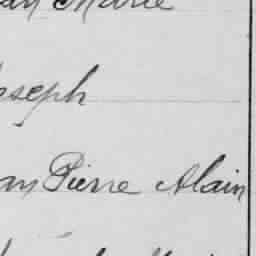 an Marie
oseph
an Pierre Alain